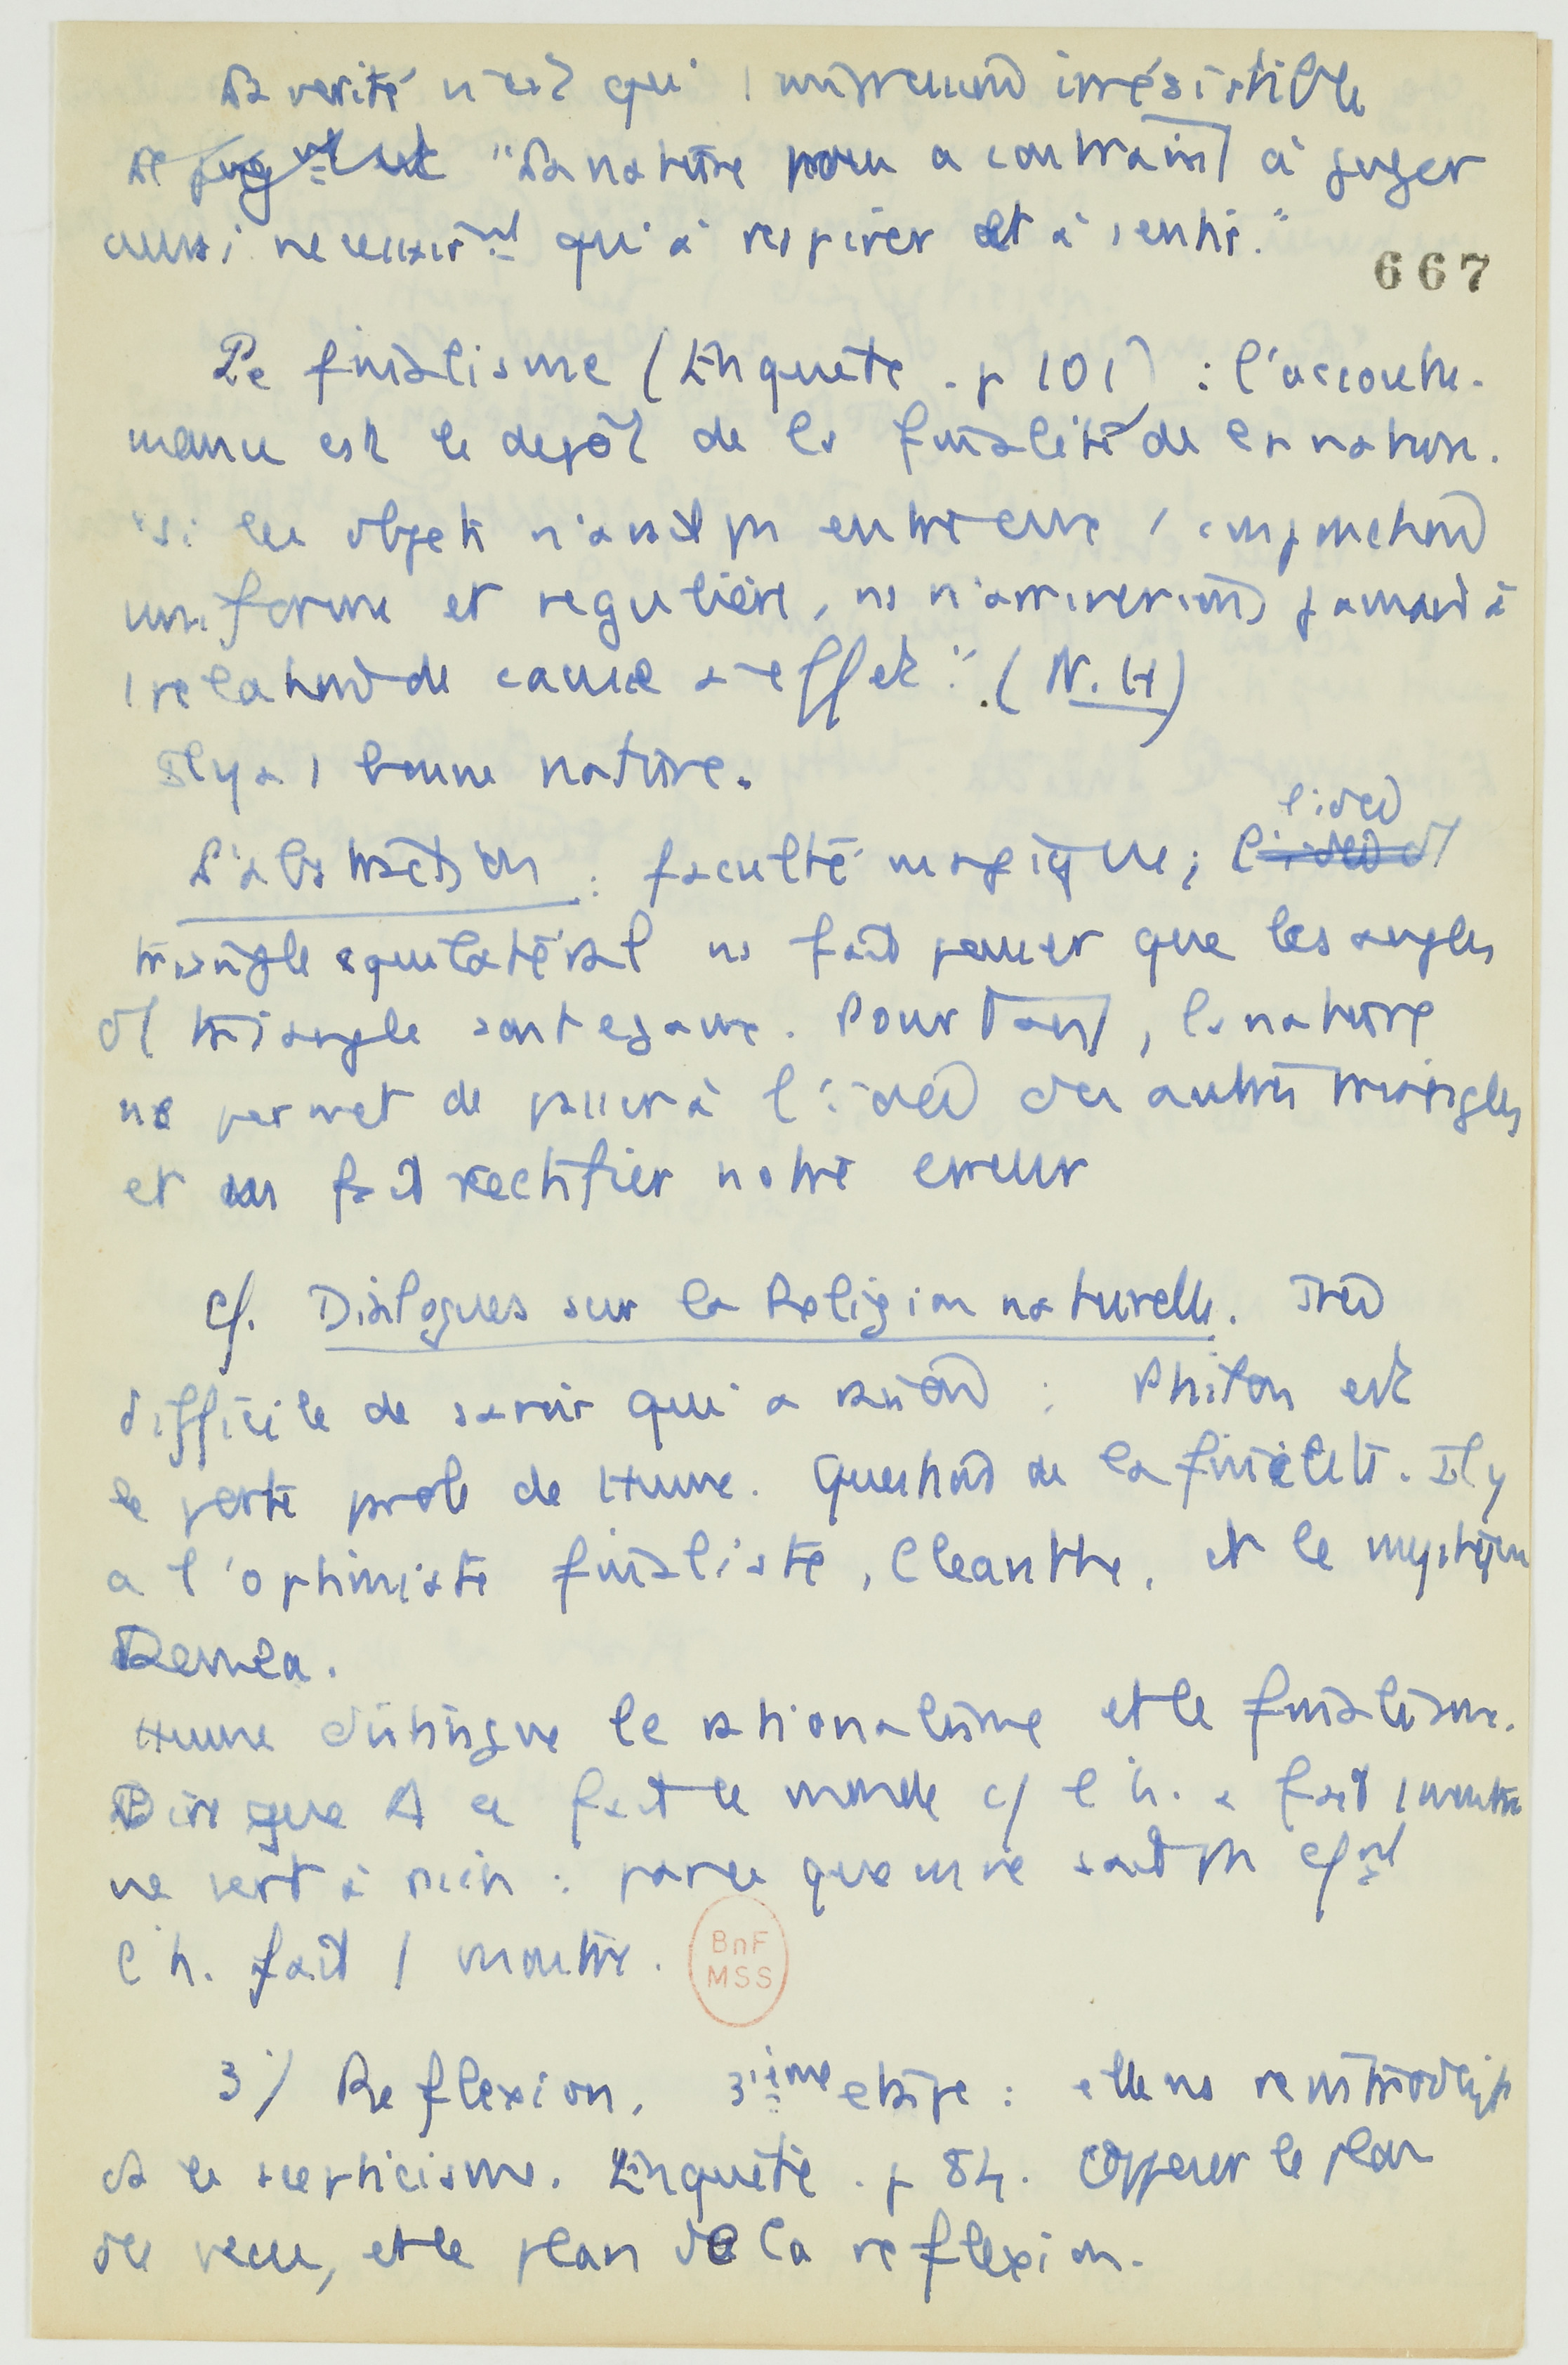 La vérité n'est qu' 1 mouvement irrésistible
de jug^nt "La nature nous a contraint à juger
aussi necessair^nt qu'à respirer et à sentir."
667
Le finalisme (Enquête - p 101) : l'accoutu-
mance est le depôt de la finalité de la nature.
"si les objets n'avait pas entre eux 1 conjonction
uniforme et regulière, ns n'arriverions jamais à
1 relation de cause à effet". (N. H)
Il y a 1 bonne nature.
l'idée
L'abstraction : faculté magique; l'idée d'1
triangle equilatéral ns fait penser que les angles
d'1 triangle sont egaux. Pourtant, la nature
ns permet de passer à l'idée des autres triangles
et ns fait rectifier notre erreur
Cf. Dialogues sur la Religion naturelle. Très
difficile de savoir qui a raison : Philon est
le porte parole de Hume. Question de la finalité. Il y
a l'optimiste finaliste, Cleanthe, et le mystique
Demea.
Hume distingue le rationalisme et le finalisme.
Dire que Δ a fait le monde c/ l'h. a fait 1 montre
ne sert à rien : parce que on ne sait pas c/^nt
l'h. fait 1 montre.
BnF
MSS
3°/ Reflexion. 3^ième etape : elle ns reintroduit
ds le scepticisme. Enquête - p 84. Opposer le plan
du vecu, et le plan de la reflexion.